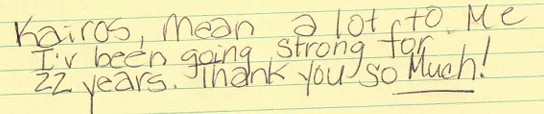 Kairos, Mean a lot to Me
I'v been going strong for
22 years. Thank you so Much!